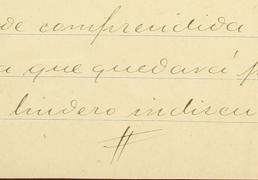 de comprendida
a que quedará p
lindero indiscu